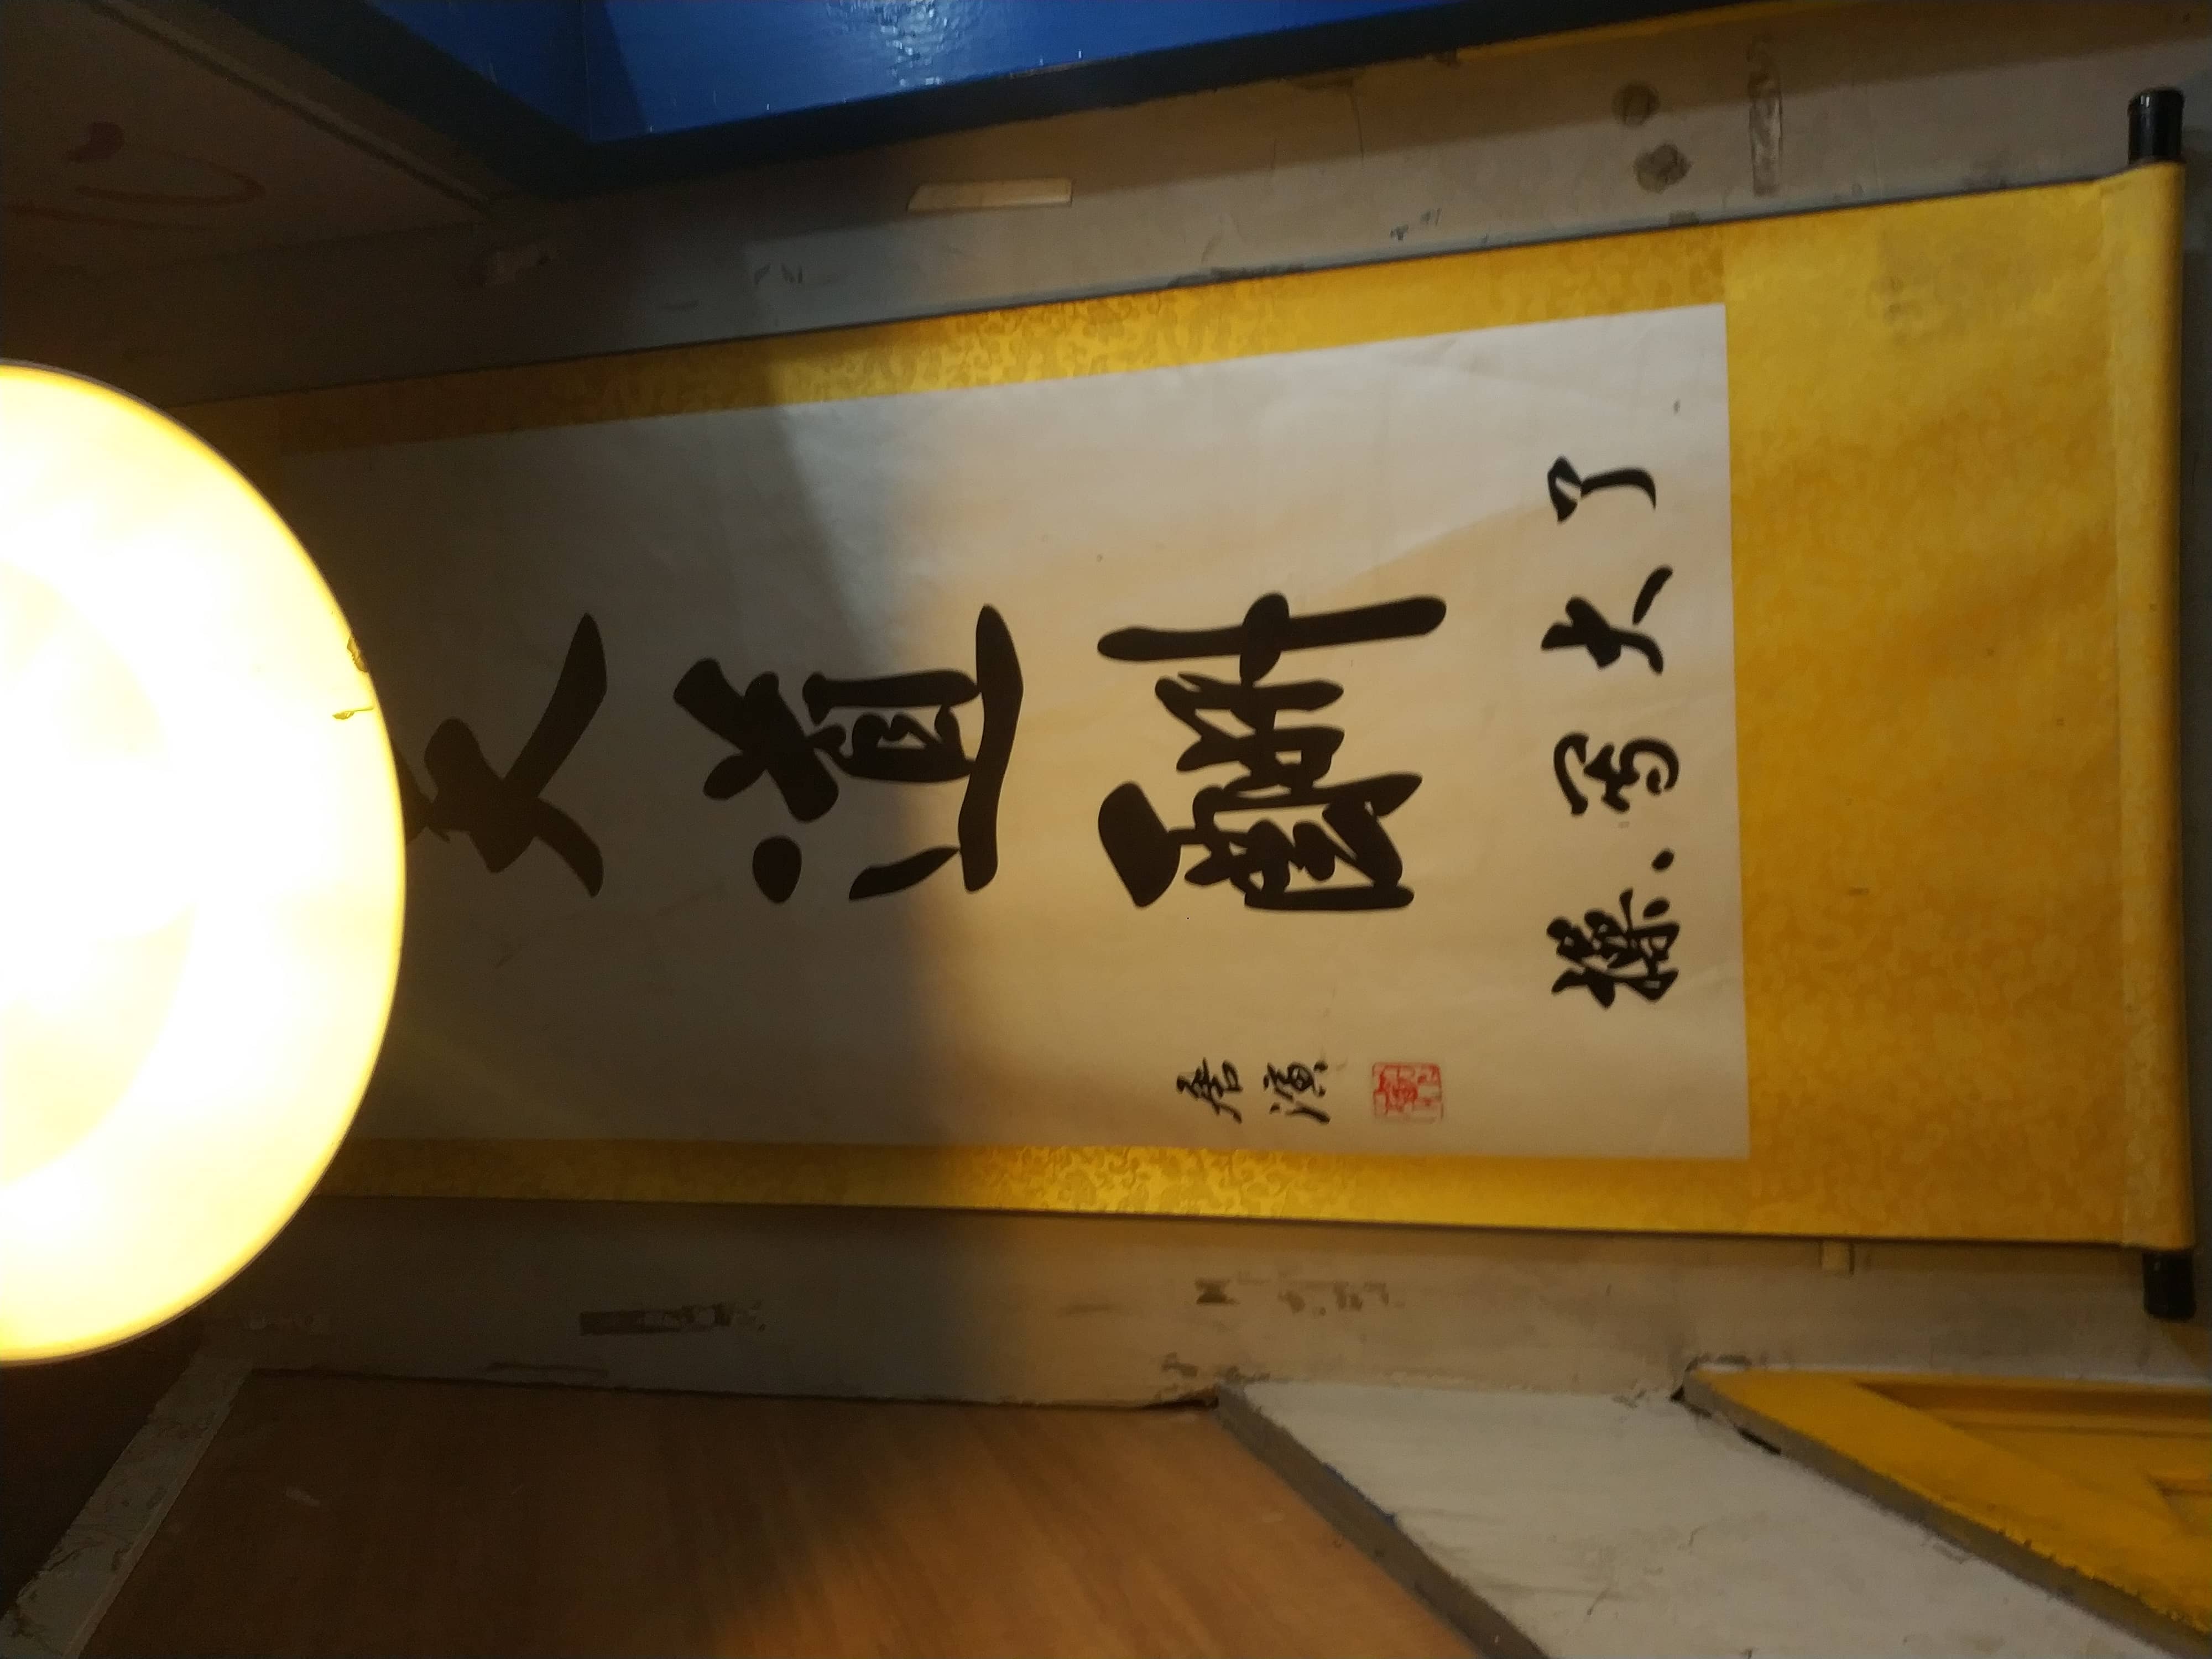 天道酬
操、写大了
唐演